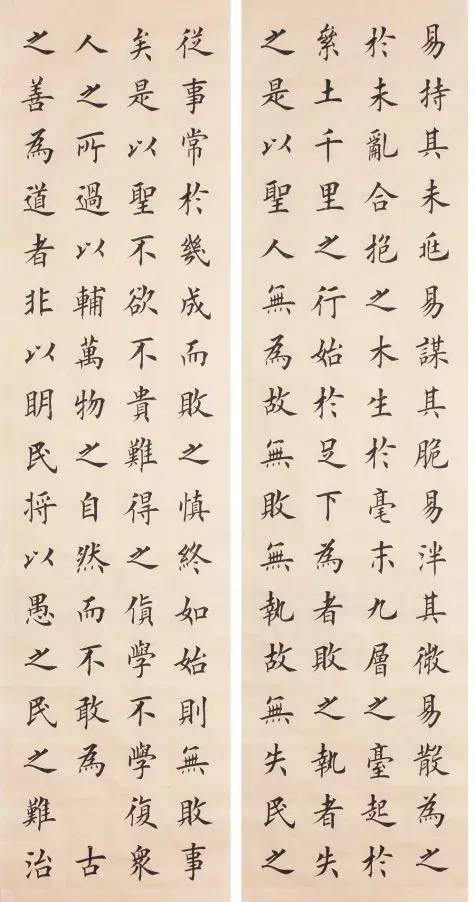 易持其未兆易謀其脆易泮其微易散為之
於未亂合抱之木生於毫末九層之臺起於
絫土千里之行始於足下為者敗之執者失
之是以聖人無為故無敗無執故無失民之
從事常於幾成而敗之慎終如始則無敗事
矣是以聖不欲不貴難得之貨學不學復衆
人之所過以輔萬物之自然而不敢為 古
之善為道者非以明民将以愚之民之難治